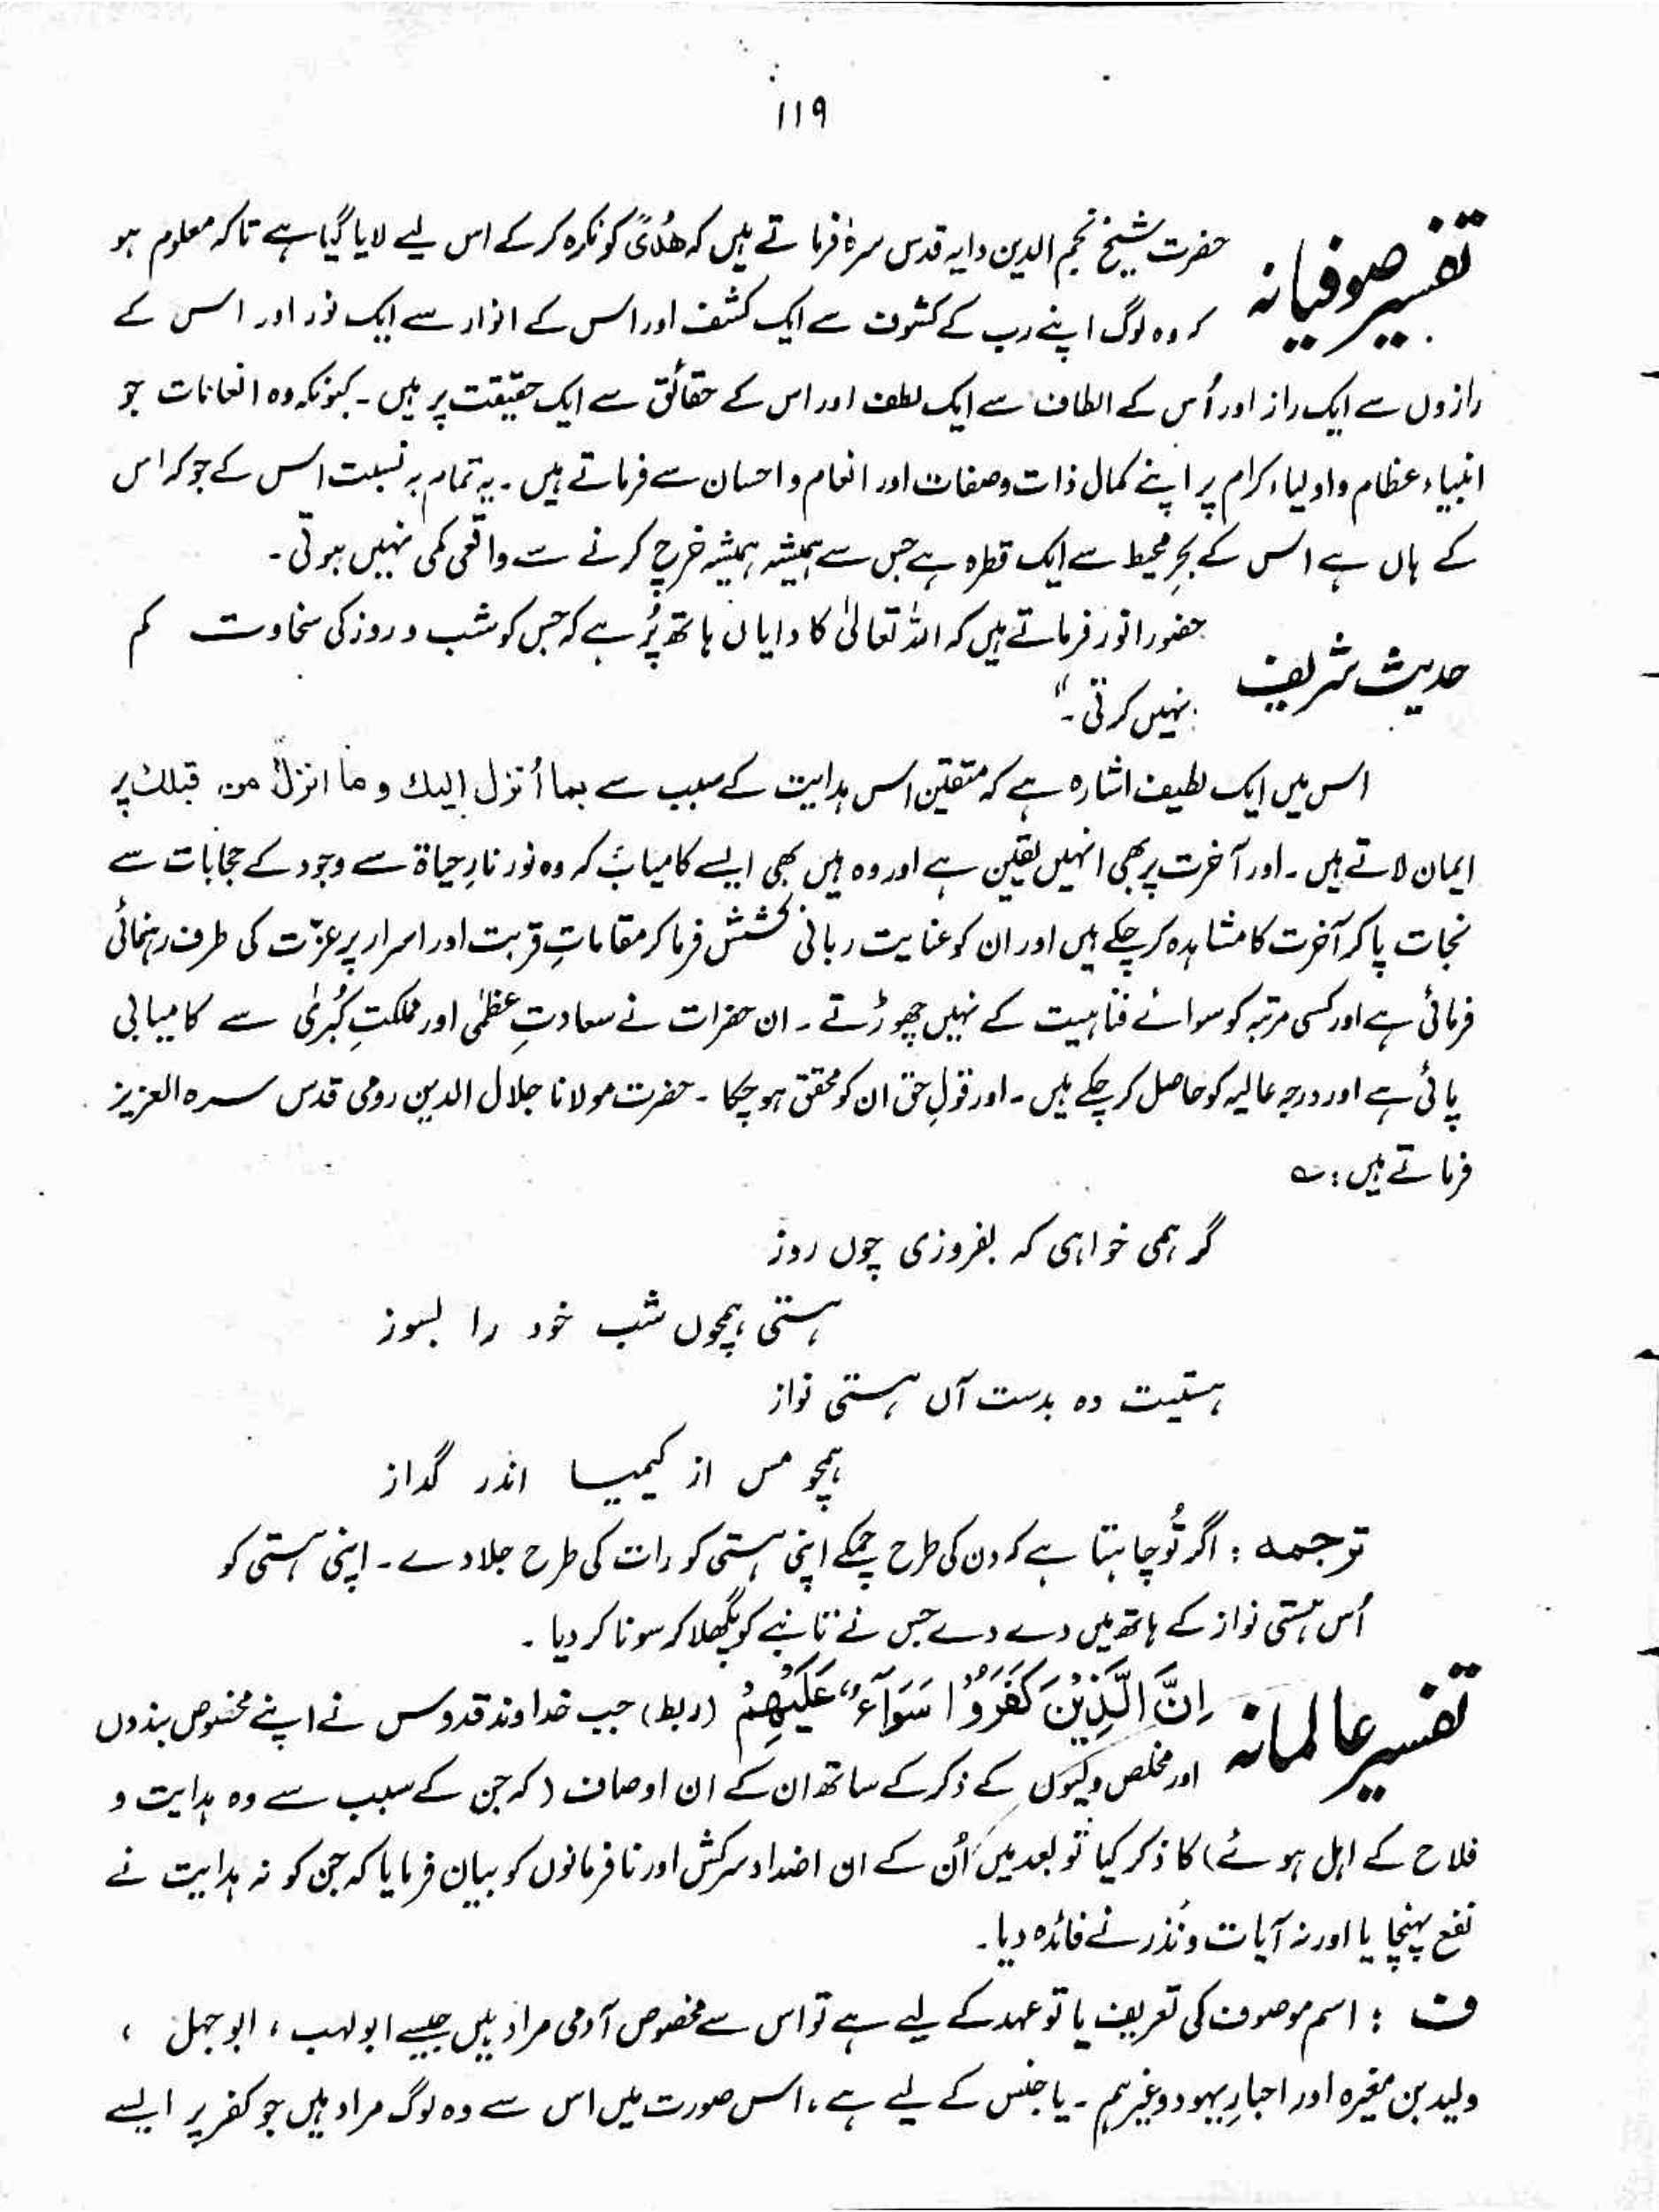 ۱۱۹
تفسیر صوفیانہ
حضرت شیخ نجم الدین دایہ قدس سرہٗ فرماتے ہیں کہ ھُدًی کو نکرہ کر کے اس لیے لایا گیا ہے تاکہ معلوم ہو
کہ وہ لوگ اپنے رب کے کشوف سے ایک کشف اور اس کے انوار سے ایک نور اور اس کے
رازوں سے ایک راز اور اُس کے الطاف سے ایک لطف اور اس کے حقائق سے ایک حقیقت پر ہیں۔ کیونکہ وہ انعامات جو
انبیاء عظام و اولیاء کرام پر اپنے کمال ذات و صفات اور انعام و احسان سے فرماتے ہیں۔ یہ تمام بہ نسبت اس کے جو کہ اس
کے ہاں ہے اس کے بحرِ محیط سے ایک قطرہ ہے جس سے ہمیشہ ہمیشہ خرچ کرنے سے واقعی کمی نہیں ہوتی۔
حدیث شریف
حضور انور فرماتے ہیں کہ اللہ تعالیٰ کا دایاں ہاتھ پُر ہے کہ جس کو شب و روز کی سخاوت کم
نہیں کرتی۔"
اس میں ایک لطیف اشارہ ہے کہ متقین اس ہدایت کے سبب سے بما أنزل إلیك و ما انزل من قبلك پر
ایمان لاتے ہیں۔ اور آخرت پر بھی انہیں یقین ہے اور وہ ہیں بھی ایسے کامیاب کہ وہ نور نارِ حیاۃ سے وجود کے حجابات سے
نجات پا کر آخرت کا مشاہدہ کر چکے ہیں اور ان کو عنایت ربانی کشش فرما کر مقاماتِ قربت اور اسرار پر عزّت کی طرف رہنمائی
فرمائی ہے اور کسی مرتبہ کو سوائے فنائیت کے نہیں چھوڑتے۔ ان حضرات نے سعادتِ عظمٰی اور مملکتِ کُبریٰ سے کامیابی
پائی ہے اور درجہ عالیہ کو حاصل کر چکے ہیں۔ اور قولِ حق ان کو محقق ہو چکا۔ حضرت مولانا جلال الدین رومی قدس سرہ العزیز
فرماتے ہیں : ؎
گر ہمی خواہی کہ بفروزی چوں روز
ہستی ہمچوں شب خود را بسوز
ہستیت دہ بدست آں ہستی نواز
ہمچو مس از کیمیا اندر گداز
ترجمہ : اگر تُو چاہتا ہے کہ دن کی طرح چمکے اپنی ہستی کو رات کی طرح جلا دے۔ اپنی ہستی کو
اُس ہستی نواز کے ہاتھ میں دے دے جس نے تانبے کو پگھلا کر سونا کر دیا۔
تفسیر عالمانہ
اِنَّ الَّذِیْنَ کَفَرُوْا سَوَآءٌ عَلَیْھِمْ (ربط) جب خداوند قدوس نے اپنے مخصوص بندوں
اور مخلص ولیوں کے ذکر کے ساتھ ان کے ان اوصاف (کہ جن کے سبب سے وہ ہدایت و
فلاح کے اہل ہوئے) کا ذکر کیا تو بعد میں اُن کے ان اضداد سرکش اور نافرمانوں کو بیان فرمایا کہ جن کو نہ ہدایت نے
نفع پہنچایا اور نہ آیات و نُذر نے فائدہ دیا۔
ف : اسم موصوف کی تعریف یا تو عہد کے لیے ہے تو اس سے مخصوص آدمی مراد ہیں جیسے ابولہب، ابوجہل،
ولید بن مغیرہ اور احبارِ یہود وغیرہم۔ یا جنس کے لیے ہے، اس صورت میں اس سے وہ لوگ مراد ہیں جو کفر پر ایسے